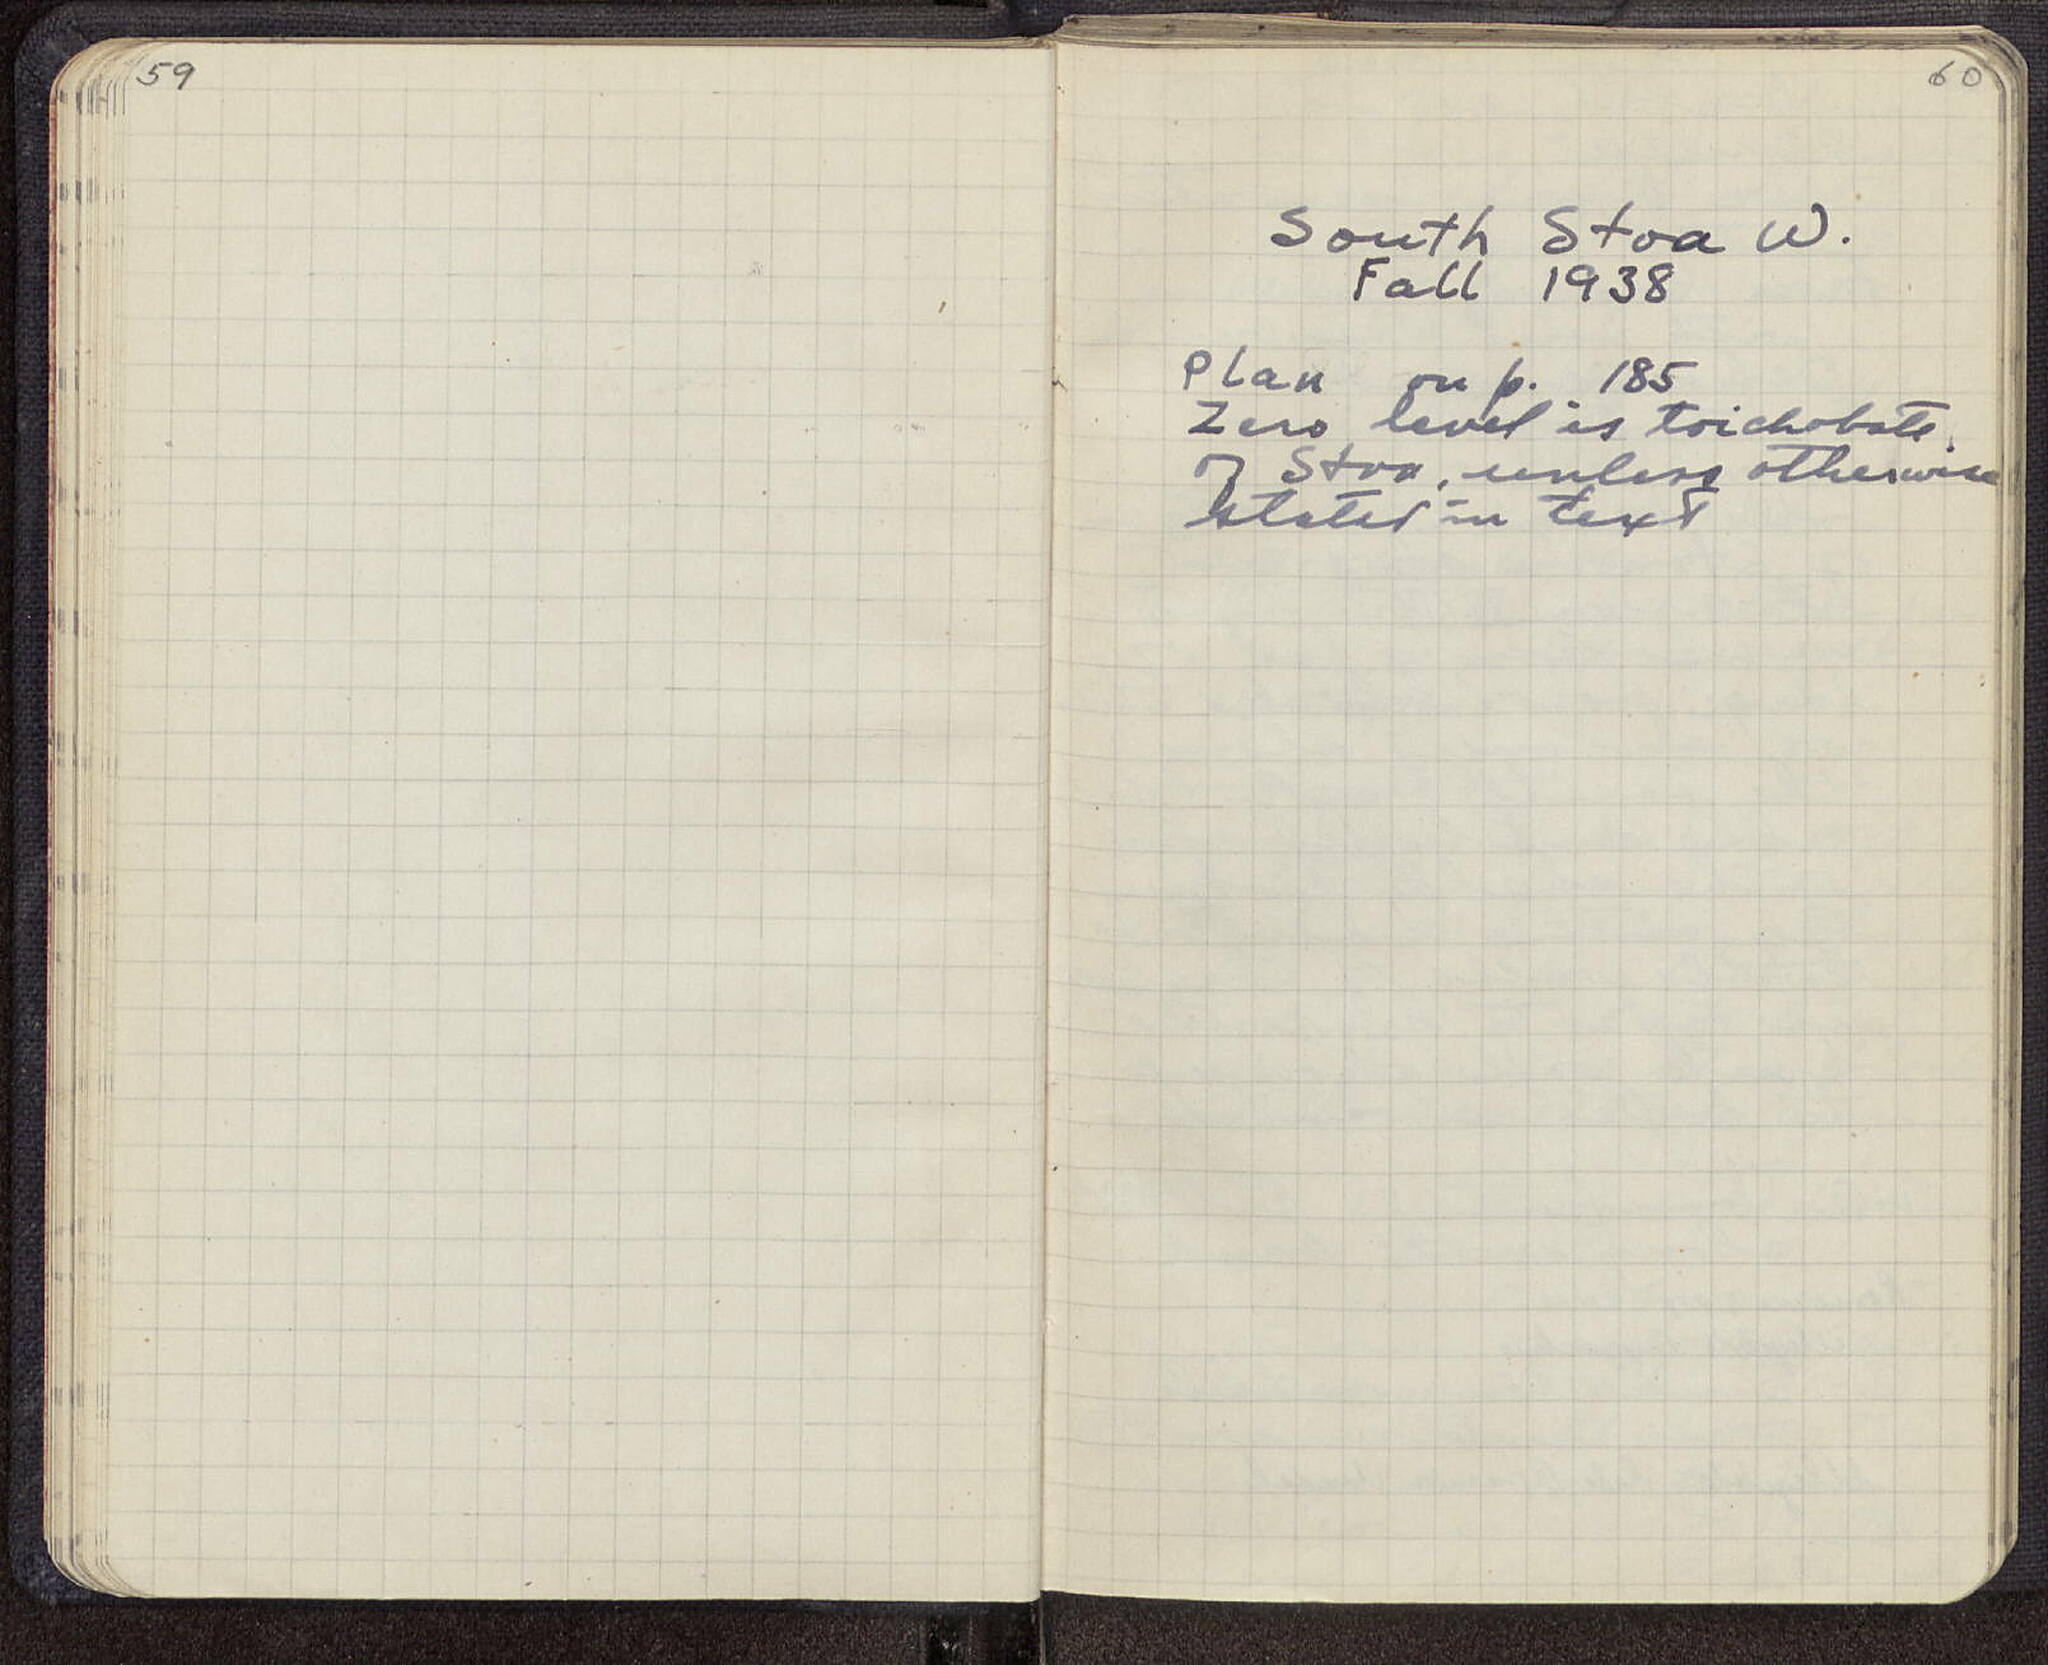 59
60
South Stoa W.
Fall 1938
Plan on p. 185
Zero level is toichobate
of Stoa, unless otherwise
stated in text